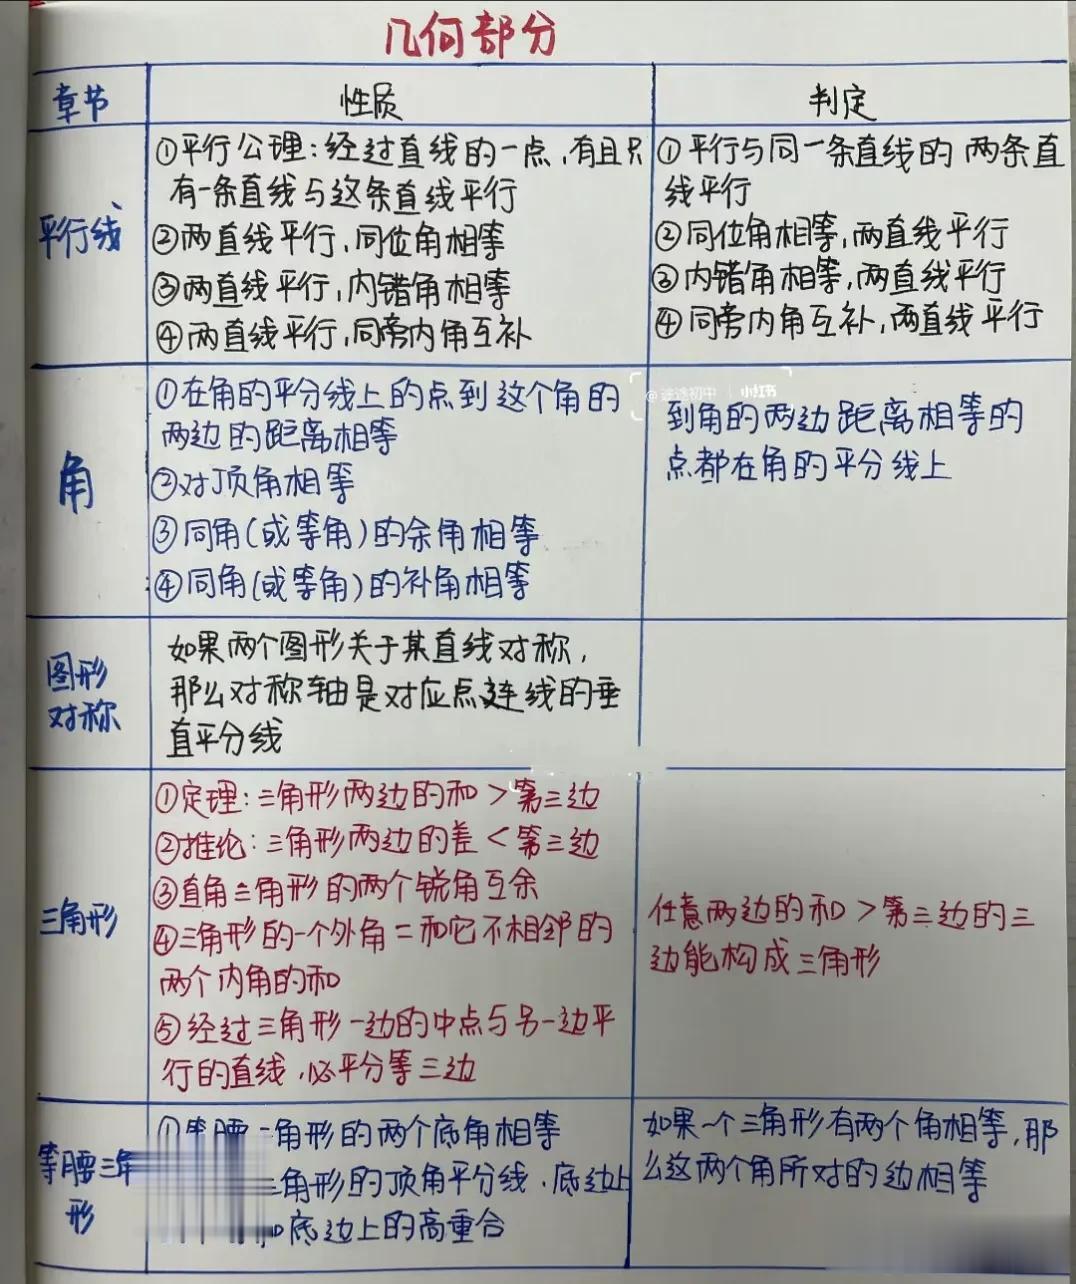 几何部分
章节 性质 判定
平行线
①平行公理：经过直线的一点，有且只
有一条直线与这条直线平行
②两直线平行，同位角相等
③两直线平行，内错角相等
④两直线平行，同旁内角互补
①平行与同一条直线的两条直
线平行
②同位角相等，两直线平行
③内错角相等，两直线平行
④同旁内角互补，两直线平行
角
①在角的平分线上的点到这个角的
两边的距离相等
②对顶角相等
③同角(或等角)的余角相等
④同角(或等角)的补角相等
@途途初中 小红书
到角的两边距离相等的
点都在角的平分线上
图形
对称
如果两个图形关于某直线对称，
那么对称轴是对应点连线的垂
直平分线
三角形
①定理：三角形两边的和＞第三边
②推论：三角形两边的差＜第三边
③直角三角形的两个锐角互余
④三角形的一个外角=和它不相邻的
两个内角的和
⑤经过三角形一边的中点与另一边平
行的直线，必平分等三边
任意两边的和＞第三边的三
边能构成三角形
等腰三角
形
①等腰三角形的两个底角相等
三角形的顶角平分线，底边上
底边上的高重合
如果一个三角形有两个角相等，那
么这两个角所对的边相等